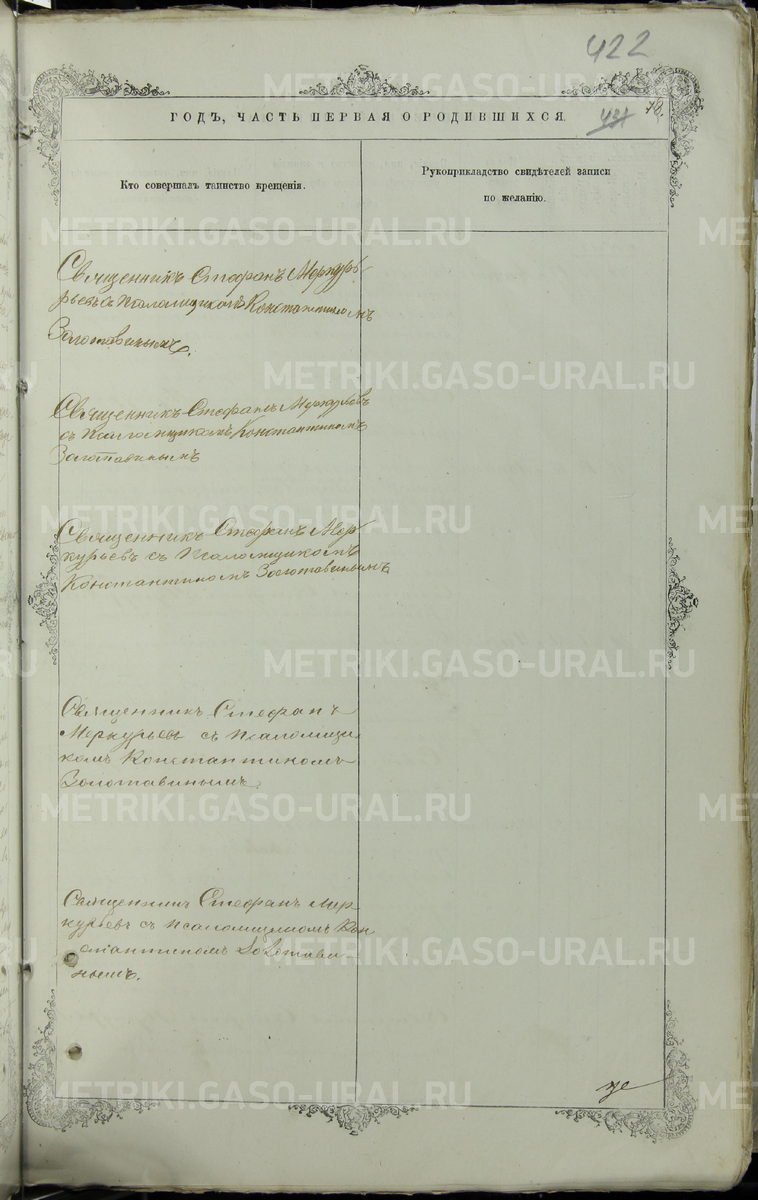 422
78.
431
ГОДЪ, ЧАСТЬ ПЕРВАЯ О РОДИВШИХСЯ.
Кто совершалъ таинство крещенія.
Рукоприкладство свидѣтелей записи
по желанію.
Священникъ Стефанъ Меркурь-
рьевъ съ Псаломщикомъ Константиномъ
Золотавинымъ.
Священникъ Стефанъ Меркурьевъ
съ Псаломщикомъ Константиномъ
Золотавинымъ
Священникъ Стефанъ Мер-
курьевъ съ Псаломщикомъ
Константиномъ Золотавинымъ
Священникъ Стефанъ
Меркурьевъ съ Псаломщи-
комъ Константиномъ
Золотавинымъ.
Священникъ Стефанъ Мер-
курьевъ съ Псаломщикомъ Кон
стантиномъ Золотави-
нымъ.
METRIKI.GASO-URAL.RU